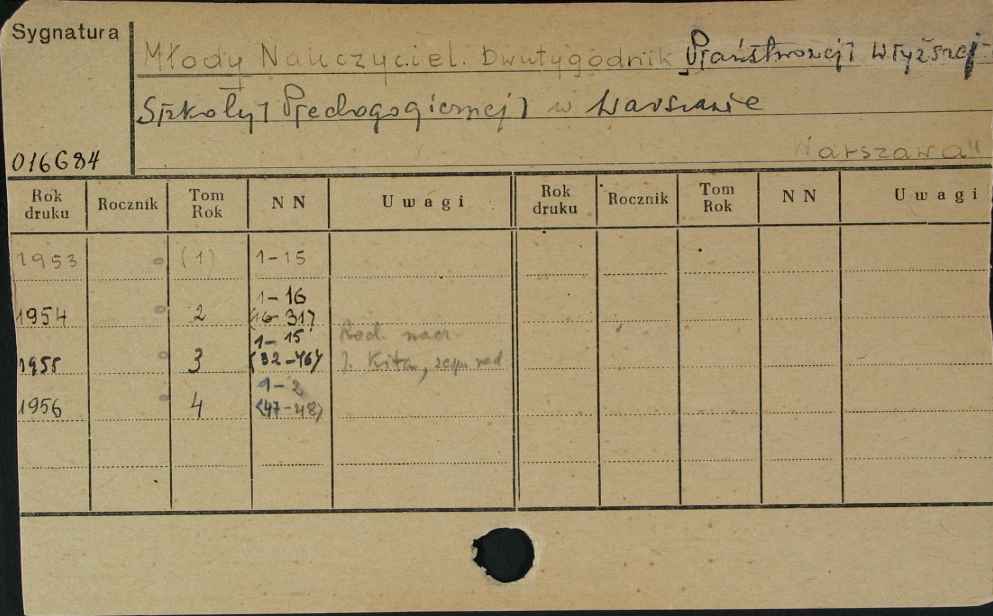 Sygnatura
Młody Nauczyciel. Dwutygodnik P[aństwowej] W[yższej]
Szkoły] P[edagogicznej] w Warszawie
Warszawa
016684
Rok druku Rocznik Tom Rok NN Uwagi Rok druku Rocznik Tom Rok NN Uwagi
1953 (1) 1-15
1954 2 1-16 (16-31)
1955 3 1-15 (32-46) Red. nacz. J. Kita, zespół red
1956 4 1-2 (47-48)